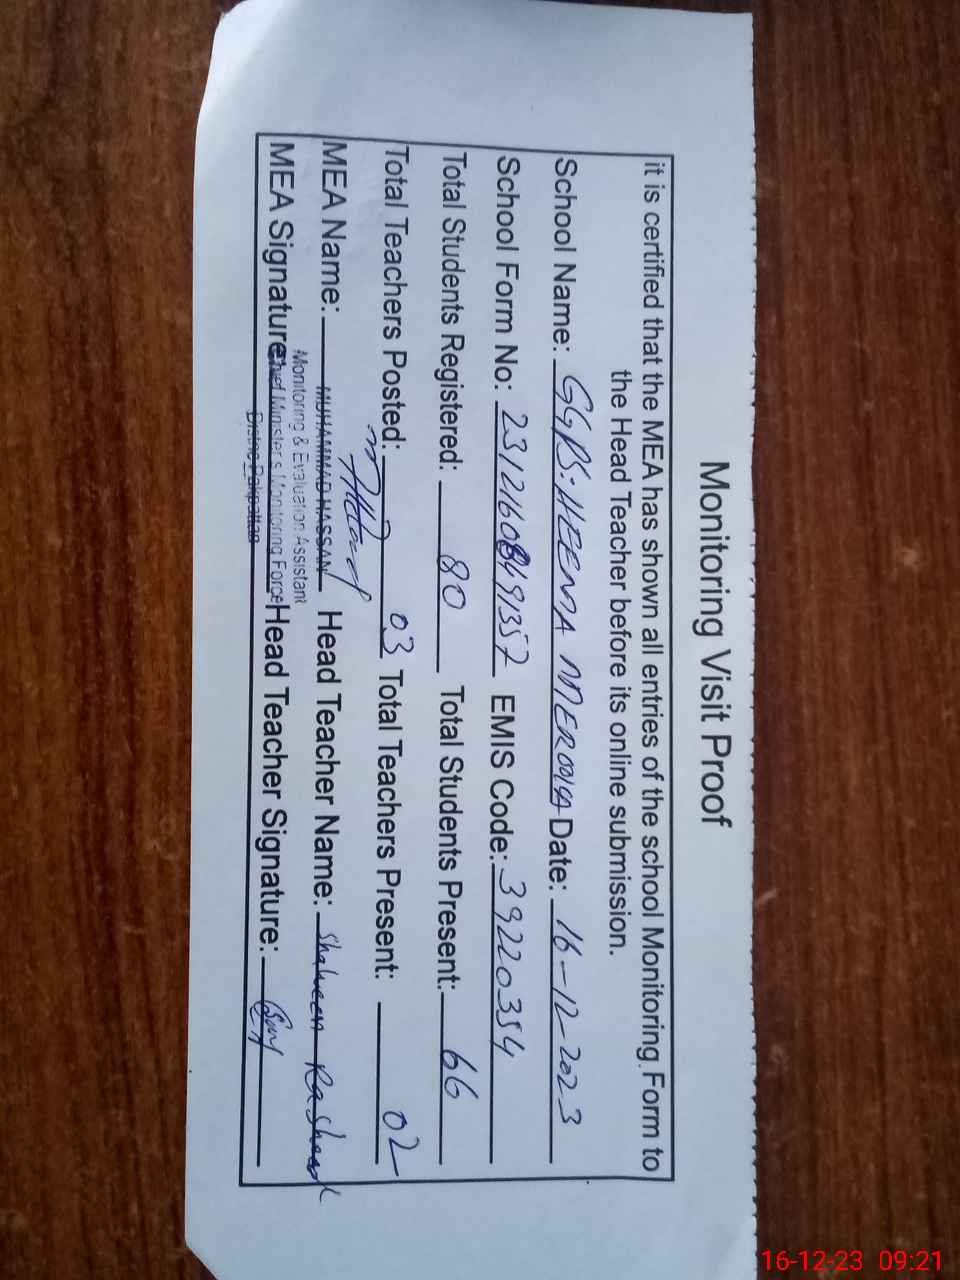 Monitoring Visit Proof
it is certified that the MEA has shown all entries of the school Monitoring Form to
the Head Teacher before its online submission.
School Name: GGPS: HEEMA Date: 16-12-2023
School Form No: EMIS Code: 39220354
Total Students Registered: 80 Total Students Present: 66
Total Teachers Posted: 03 Total Teachers Present: 02
MEA Name: MUHAMMAD HASSAN Head Teacher Name: Shaheen Rasheed
Monitoring & Evaluation Assistant
MEA Signature: Chief Minister's Monitoring Force Head Teacher Signature:
District Pakpattan
16-12-23 09:21